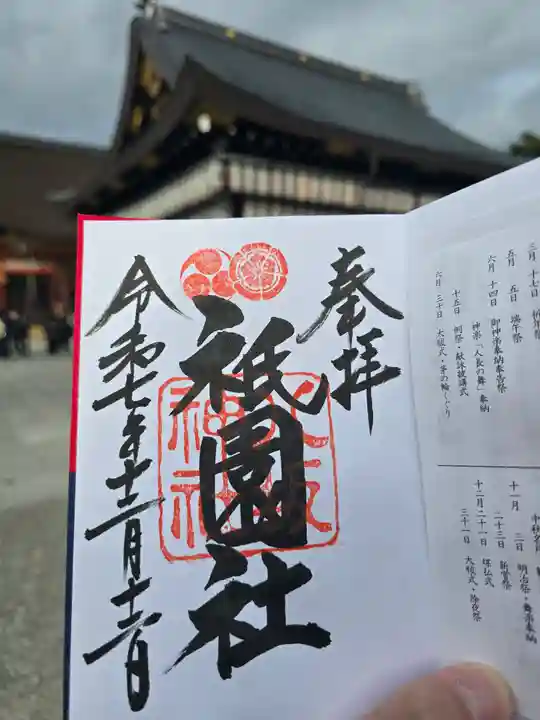 奉拝
祇園社
八坂神社
令和七年十二月十二日
三月 十七日 祈年祭
五月 五日 端午祭
六月 十四日 御神水奉納奉告祭
神楽「人長の舞」奉納
十五日 例祭・献詠披講式
六月 三十日 大祓式・茅の輪くぐり
十一月 三日 明治祭・舞楽奉納
二十三日 新嘗祭
十二月二十一日 煤払式
三十一日 大祓式・除夜祭